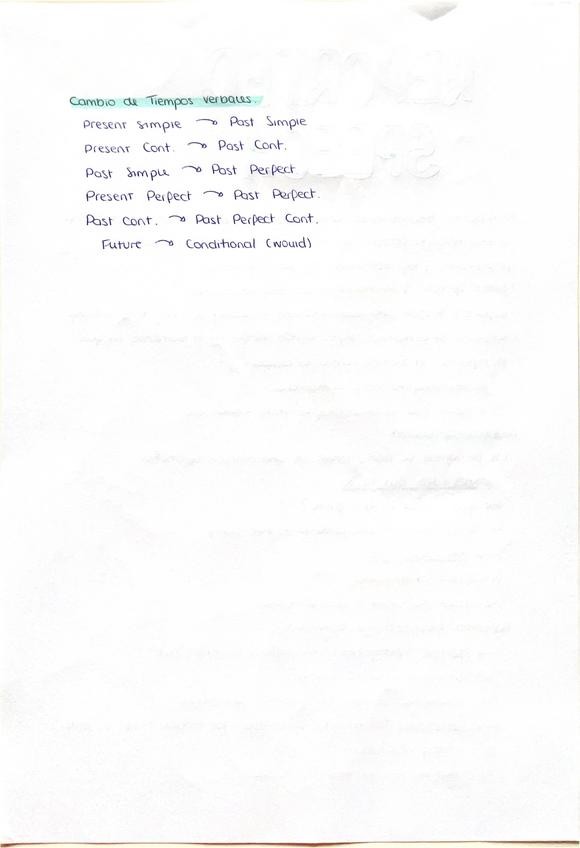 Cambio de Tiempos verbales.
Present simple → Past Simple
Present Cont. → Past Cont.
Past Simple → Past Perfect
Present Perfect → Past Perfect.
Past Cont. → Past Perfect Cont.
Future → Conditional (would)